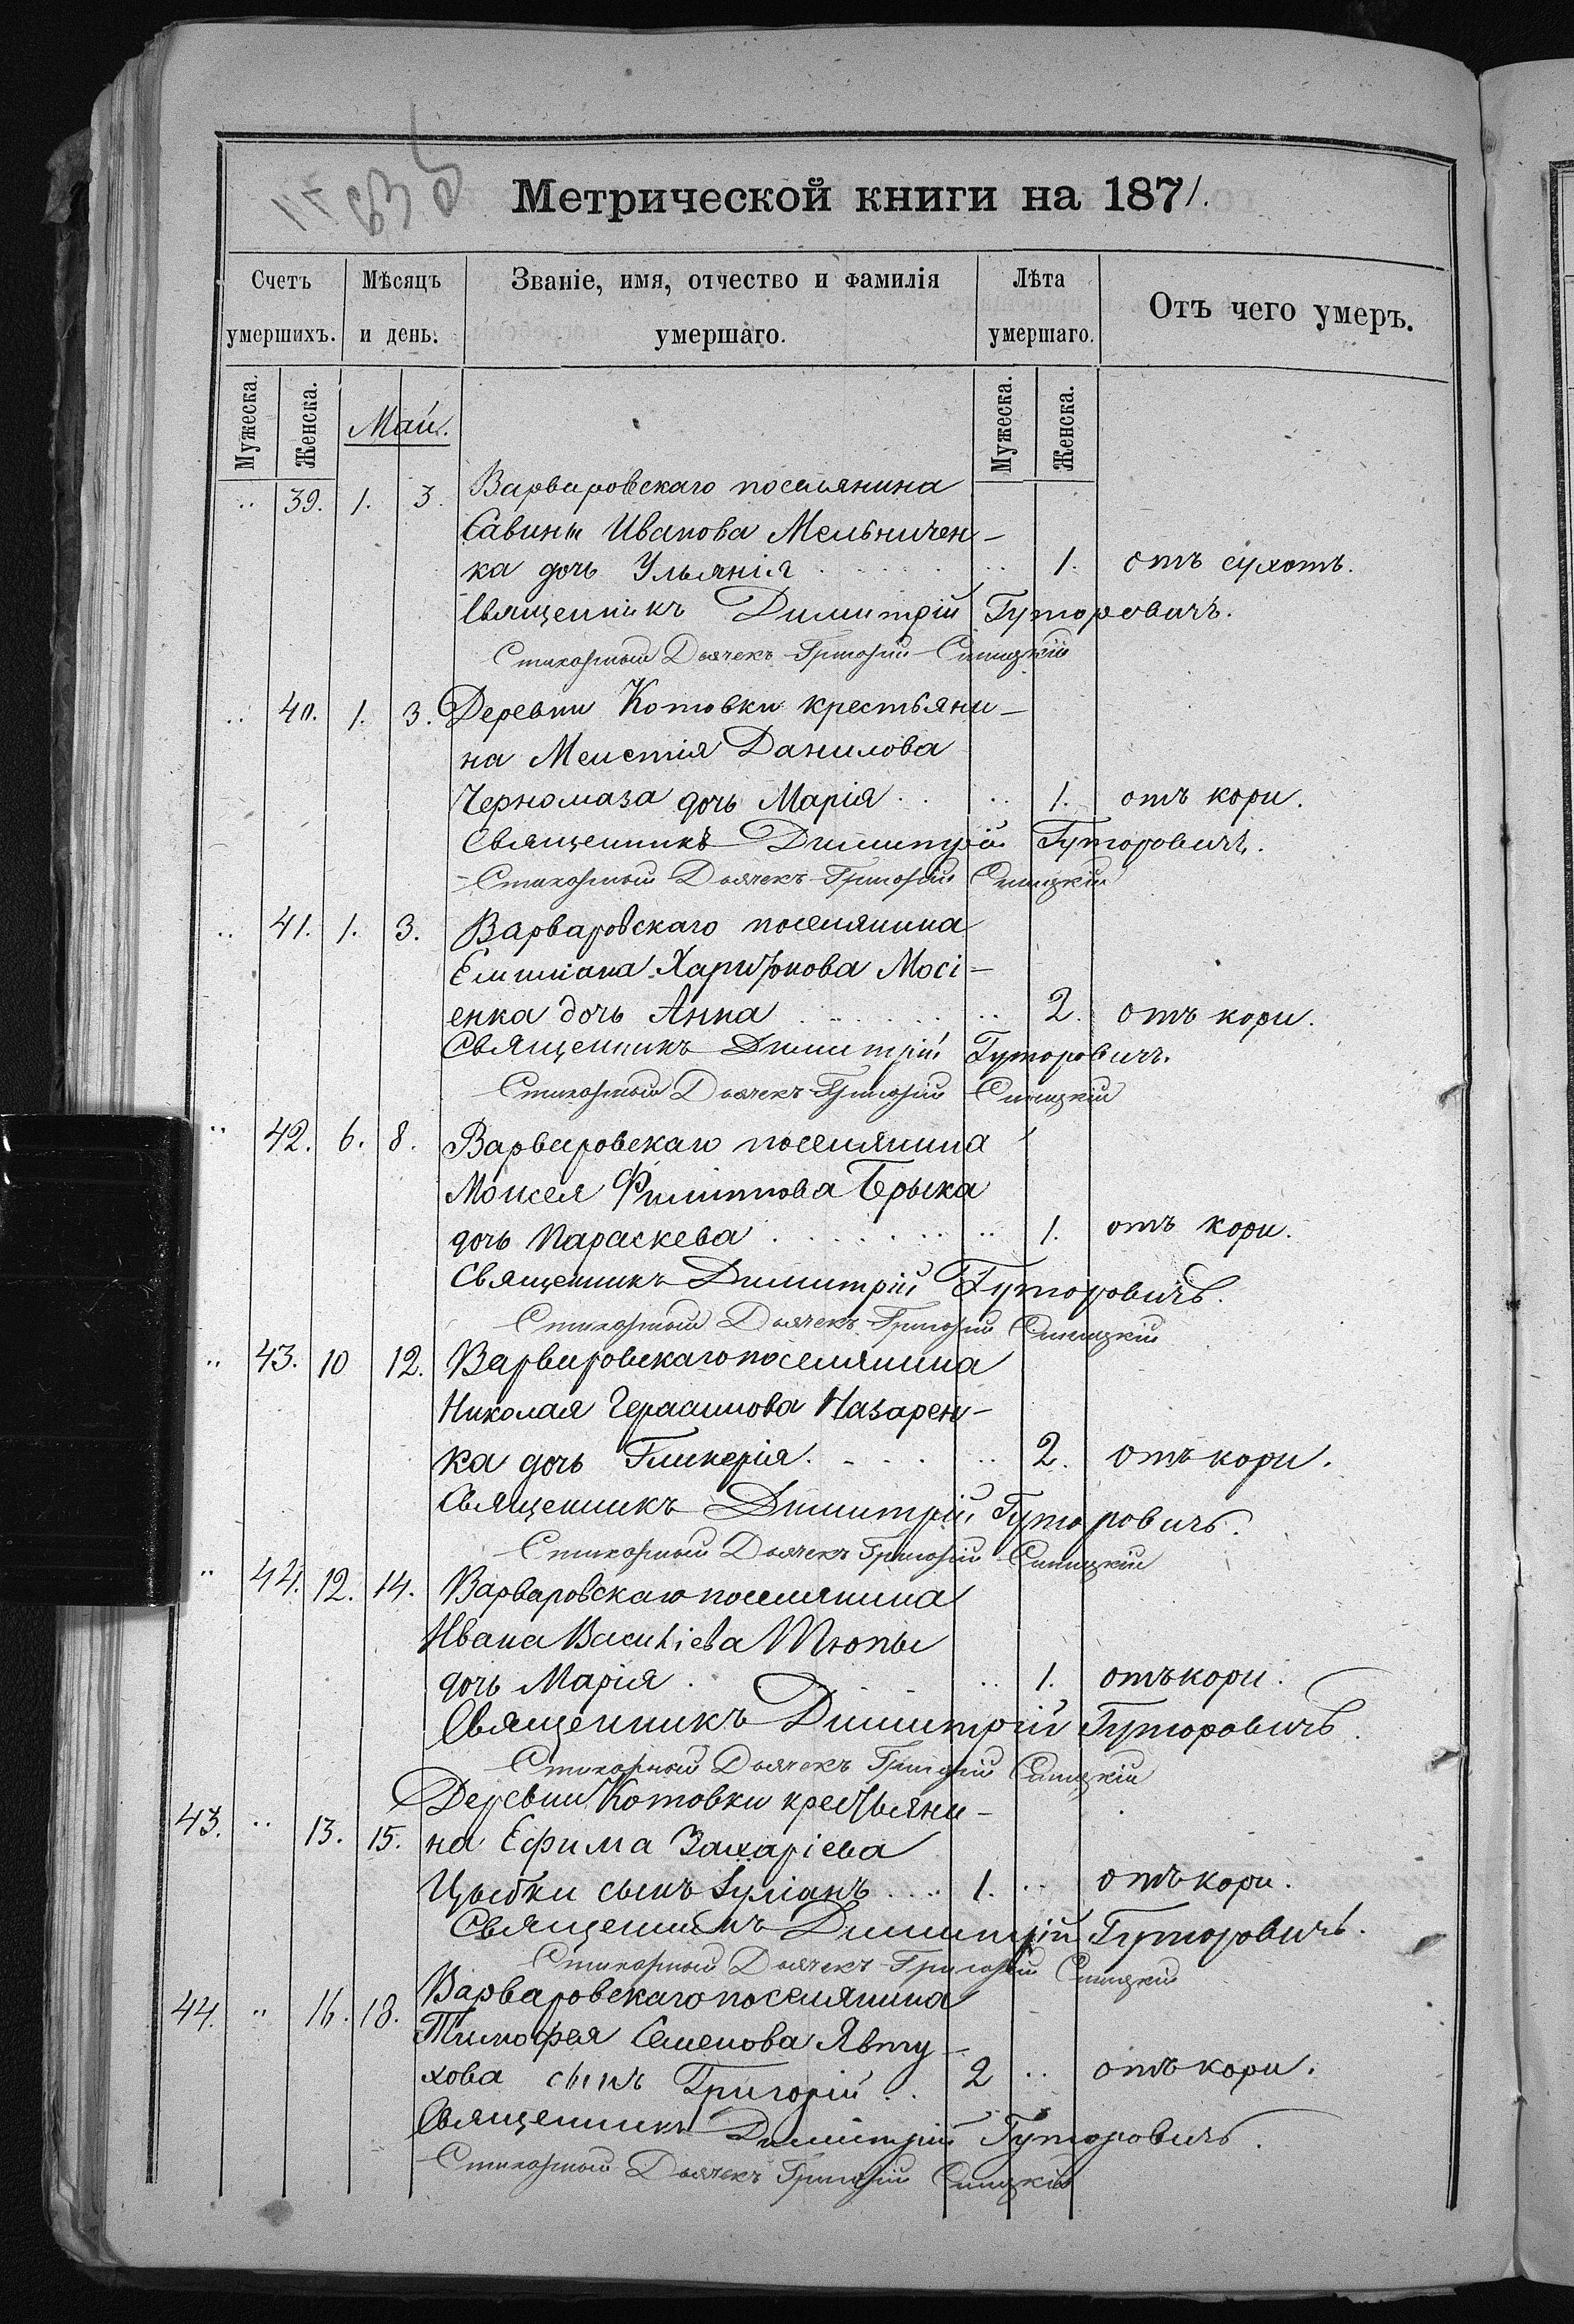 Метрической книги на 1871.
Счетъ умершихъ. Мѣсяцъ и день. Званіе, имя, отчество и фамилія умершаго. Лѣта умершаго. Отъ чего умеръ.
Мужеска. Женска. Май. Мужеска. Женска.
.. 39. 1. 3. Варваровскаго поселянина
Савины Иванова Мельничен-
ка дочь Ульянія .. 1. отъ сухотъ.
Священникъ Димитрій Гуторовичъ.
Стихарный Дьячекъ Григорій Синицкій
.. 40. 1. 3. Деревни Котовки крестьяни-
на Данилова
Черномаза дочь Марія .. 1. отъ кори.
Священникъ Димитрій Гуторовичъ.
Стихарный Дьячекъ Григорій Синицкій
.. 41. 1. 3. Варваровскаго поселянина
Емиліана Харитонова Мосі-
енка дочь Анна .. 2. отъ кори.
Священникъ Димитрій Гуторовичъ.
Стихарный Дьячекъ Григорій Синицкій
.. 42. 6. 8. Варваровскаго поселянина
Моисея Филиппова Брыка
дочь Параскева .. 1. отъ кори.
Священникъ Димитрій Гуторовичъ.
Стихарный Дьячекъ Григорій Синицкій
.. 43. 10 12. Варваровскаго поселянина
Николая Герасимова Назарен-
ка дочь Гликерія .. 2. отъ кори.
Священникъ Димитрій Гуторовичъ.
Стихарный Дьячекъ Григорій Синицкій
.. 44. 12. 14. Варваровскаго поселянина
Ивана Василіева Тюпы
дочь Марія .. 1. отъ кори.
Священникъ Димитрій Гуторовичъ.
Стихарный Дьячекъ Григорій Синицкій
Деревни Котовки крестьяни-
43. .. 13. 15. на Ефима Захаріева
Цыбки сынъ Іуліанъ 1. .. отъ кори.
Священникъ Димитрій Гуторовичъ.
Стихарный Дьячекъ Григорій Синицкій
Варваровскаго поселянина
44. .. 16. 18. Тимофея Семенова Явту-
хова сынъ Григорій .. 2 .. отъ кори.
Священникъ Димитрій Гуторовичъ.
Стихарный Дьячекъ Григорій Синицкій